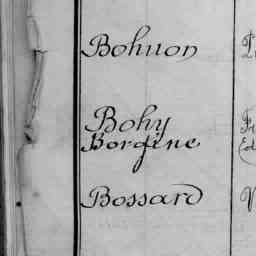 Bohuon
Bohy
Borgine
Bossard